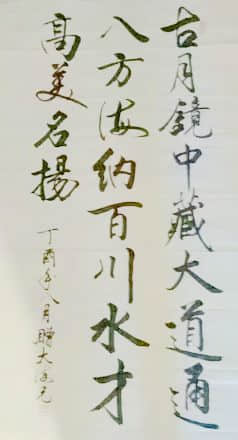 古月镜中藏大道通
八方海纳百川水才
高美名揚
丁酉年八月赠大